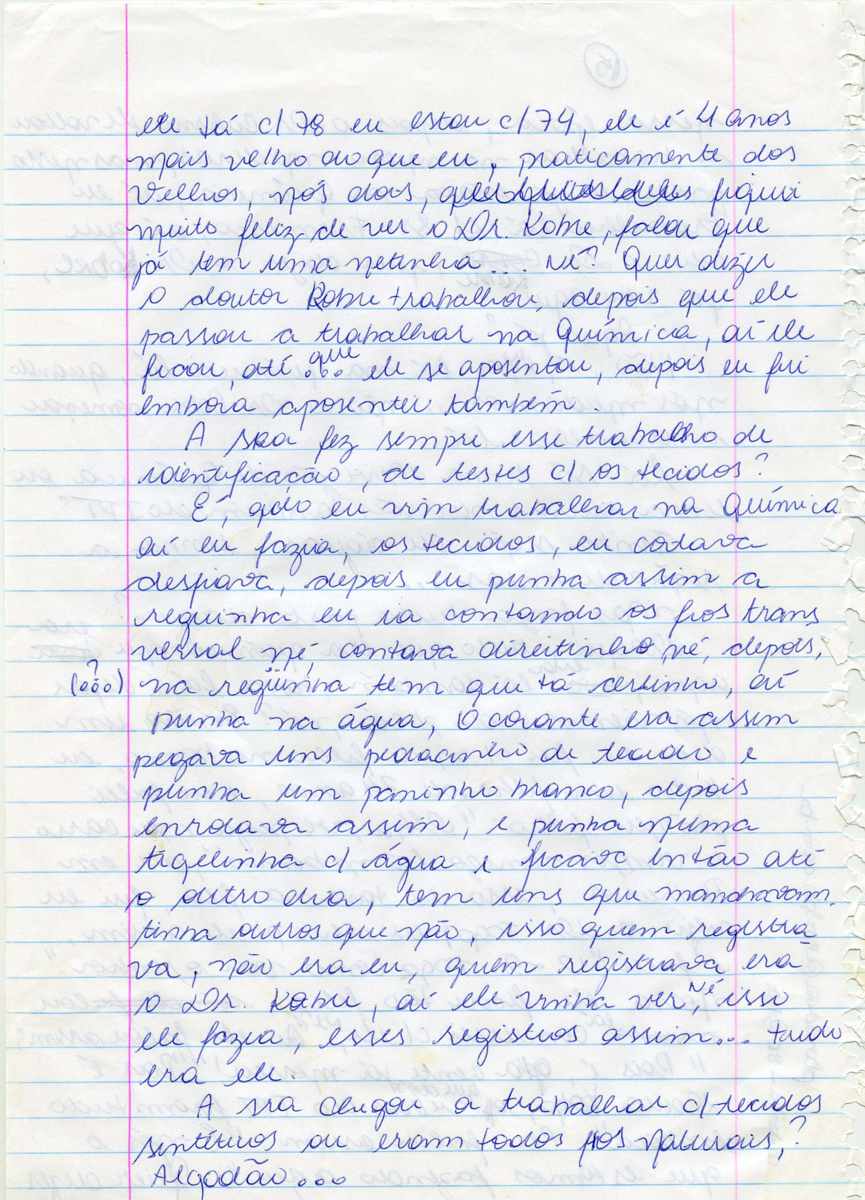 ele tá c/78 eu estou c/74, ele é 4 anos
mais velho do que eu, praticamente dos
velhos, nós dois, fiquei
muito feliz de ver o Dr. Kobe, falou que
já tem uma netinha... né? Quer dizer
o doutor Kobe trabalhou, depois que ele
passou a trabalhar na Química, aí ele
ficou, até que... ele se aposentou, depois eu fui
embora aposentei também.
A sra fez sempre esse trabalho de
identificação, de testes c/ os tecidos?
É, qdo eu vim trabalhar na Química
aí eu fazia, os tecidos, eu cortava
desfiava, depois eu punha assim a
reguinha eu ia contando os fios trans
versal né, contava direitinho, né, depois,
(ooo)? na regüinha tem que tá certinho, aí
punha na água, o corante era assim
pegava uns pedacinho de tecido e
punha um paninho branco, depois
enrolava assim, e punha numa
tigelinha c/ água e ficava então até
o outro dia, tem uns que manchavam,
tinha outros que não, isso quem registra
va, não era eu, quem registrava era
o Dr. Kobe, aí ele vinha ver, né, isso
ele fazia, esses registros assim... tudo
era ele.
A sra chegou a trabalhar c/ tecidos
sintéticos ou eram todos fios naturais,?
Algodão...